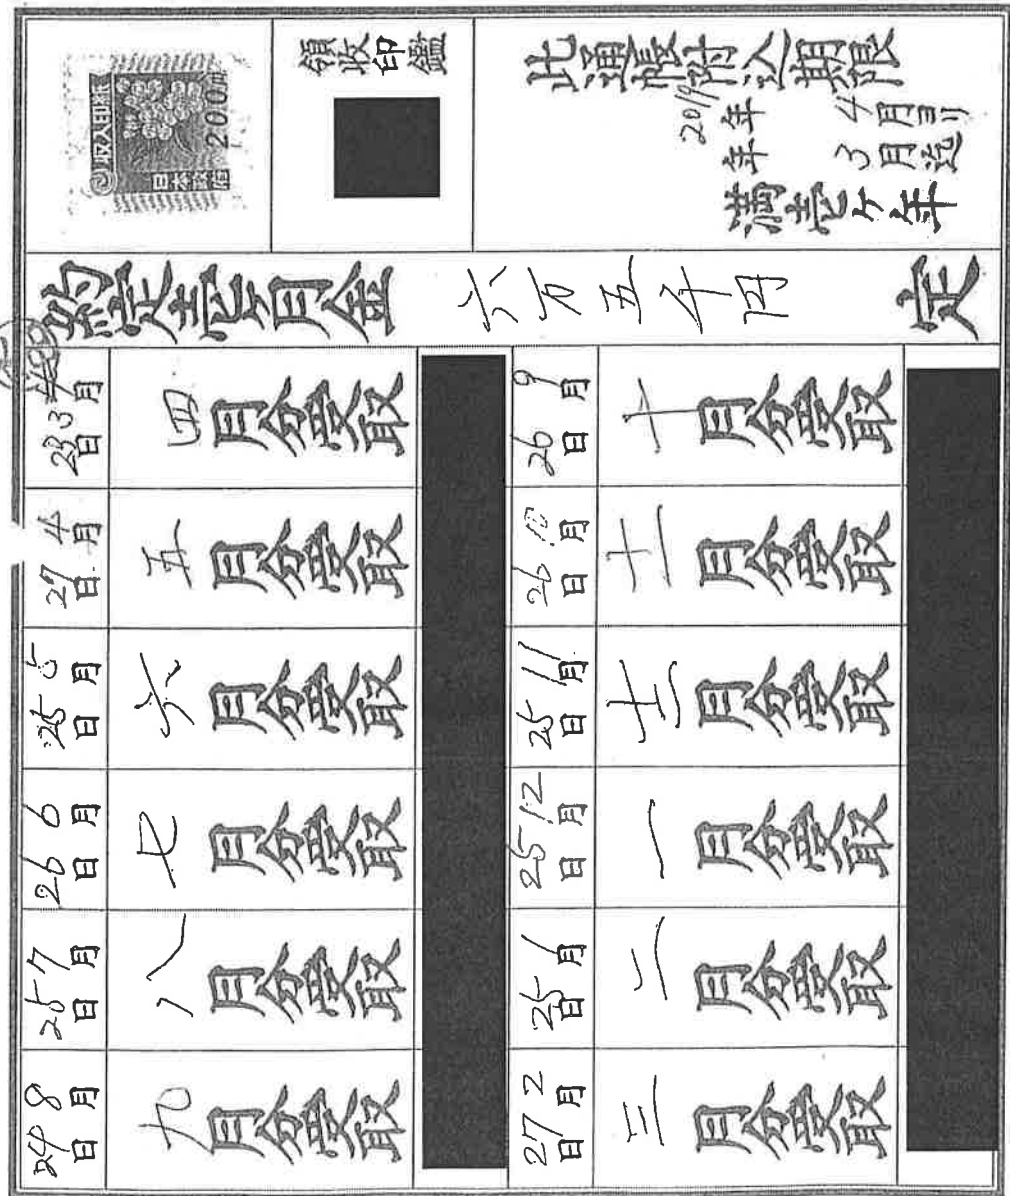 此通帳附込期限
2019年 4月ヨリ
年 3月迄
満壱ヶ年
領収印鑑
収入印紙
200円
日本政府
約定壱ヶ月金 六万五千円 定
3月 日 四月分受取
4月27日 五月分受取
5月25日 六月分受取
6月26日 七月分受取
7月25日 八月分受取
8月29日 九月分受取
9月26日 十月分受取
10月26日 十一月分受取
11月25日 十二月分受取
12月25日 一月分受取
1月25日 二月分受取
2月27日 三月分受取